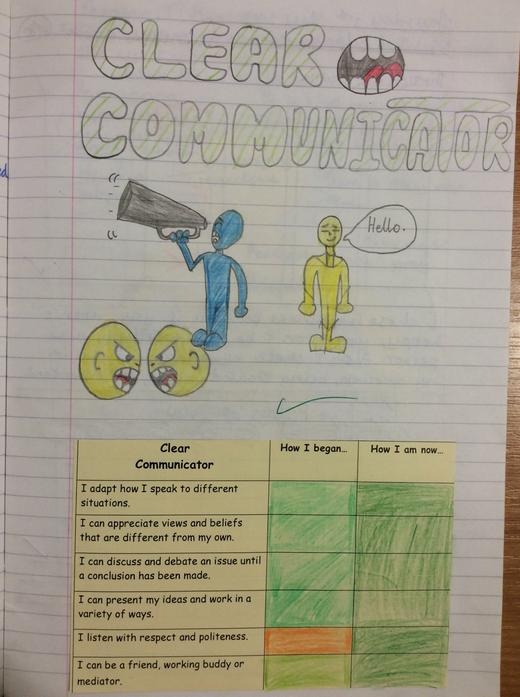 CLEAR
COMMUNICATOR
Hello.
Clear
Communicator
How I began...
How I am now...
I adapt how I speak to different
situations.
I can appreciate views and beliefs
that are different from my own.
I can discuss and debate an issue until
a conclusion has been made.
I can present my ideas and work in a
variety of ways.
I listen with respect and politeness.
I can be a friend, working buddy or
mediator.